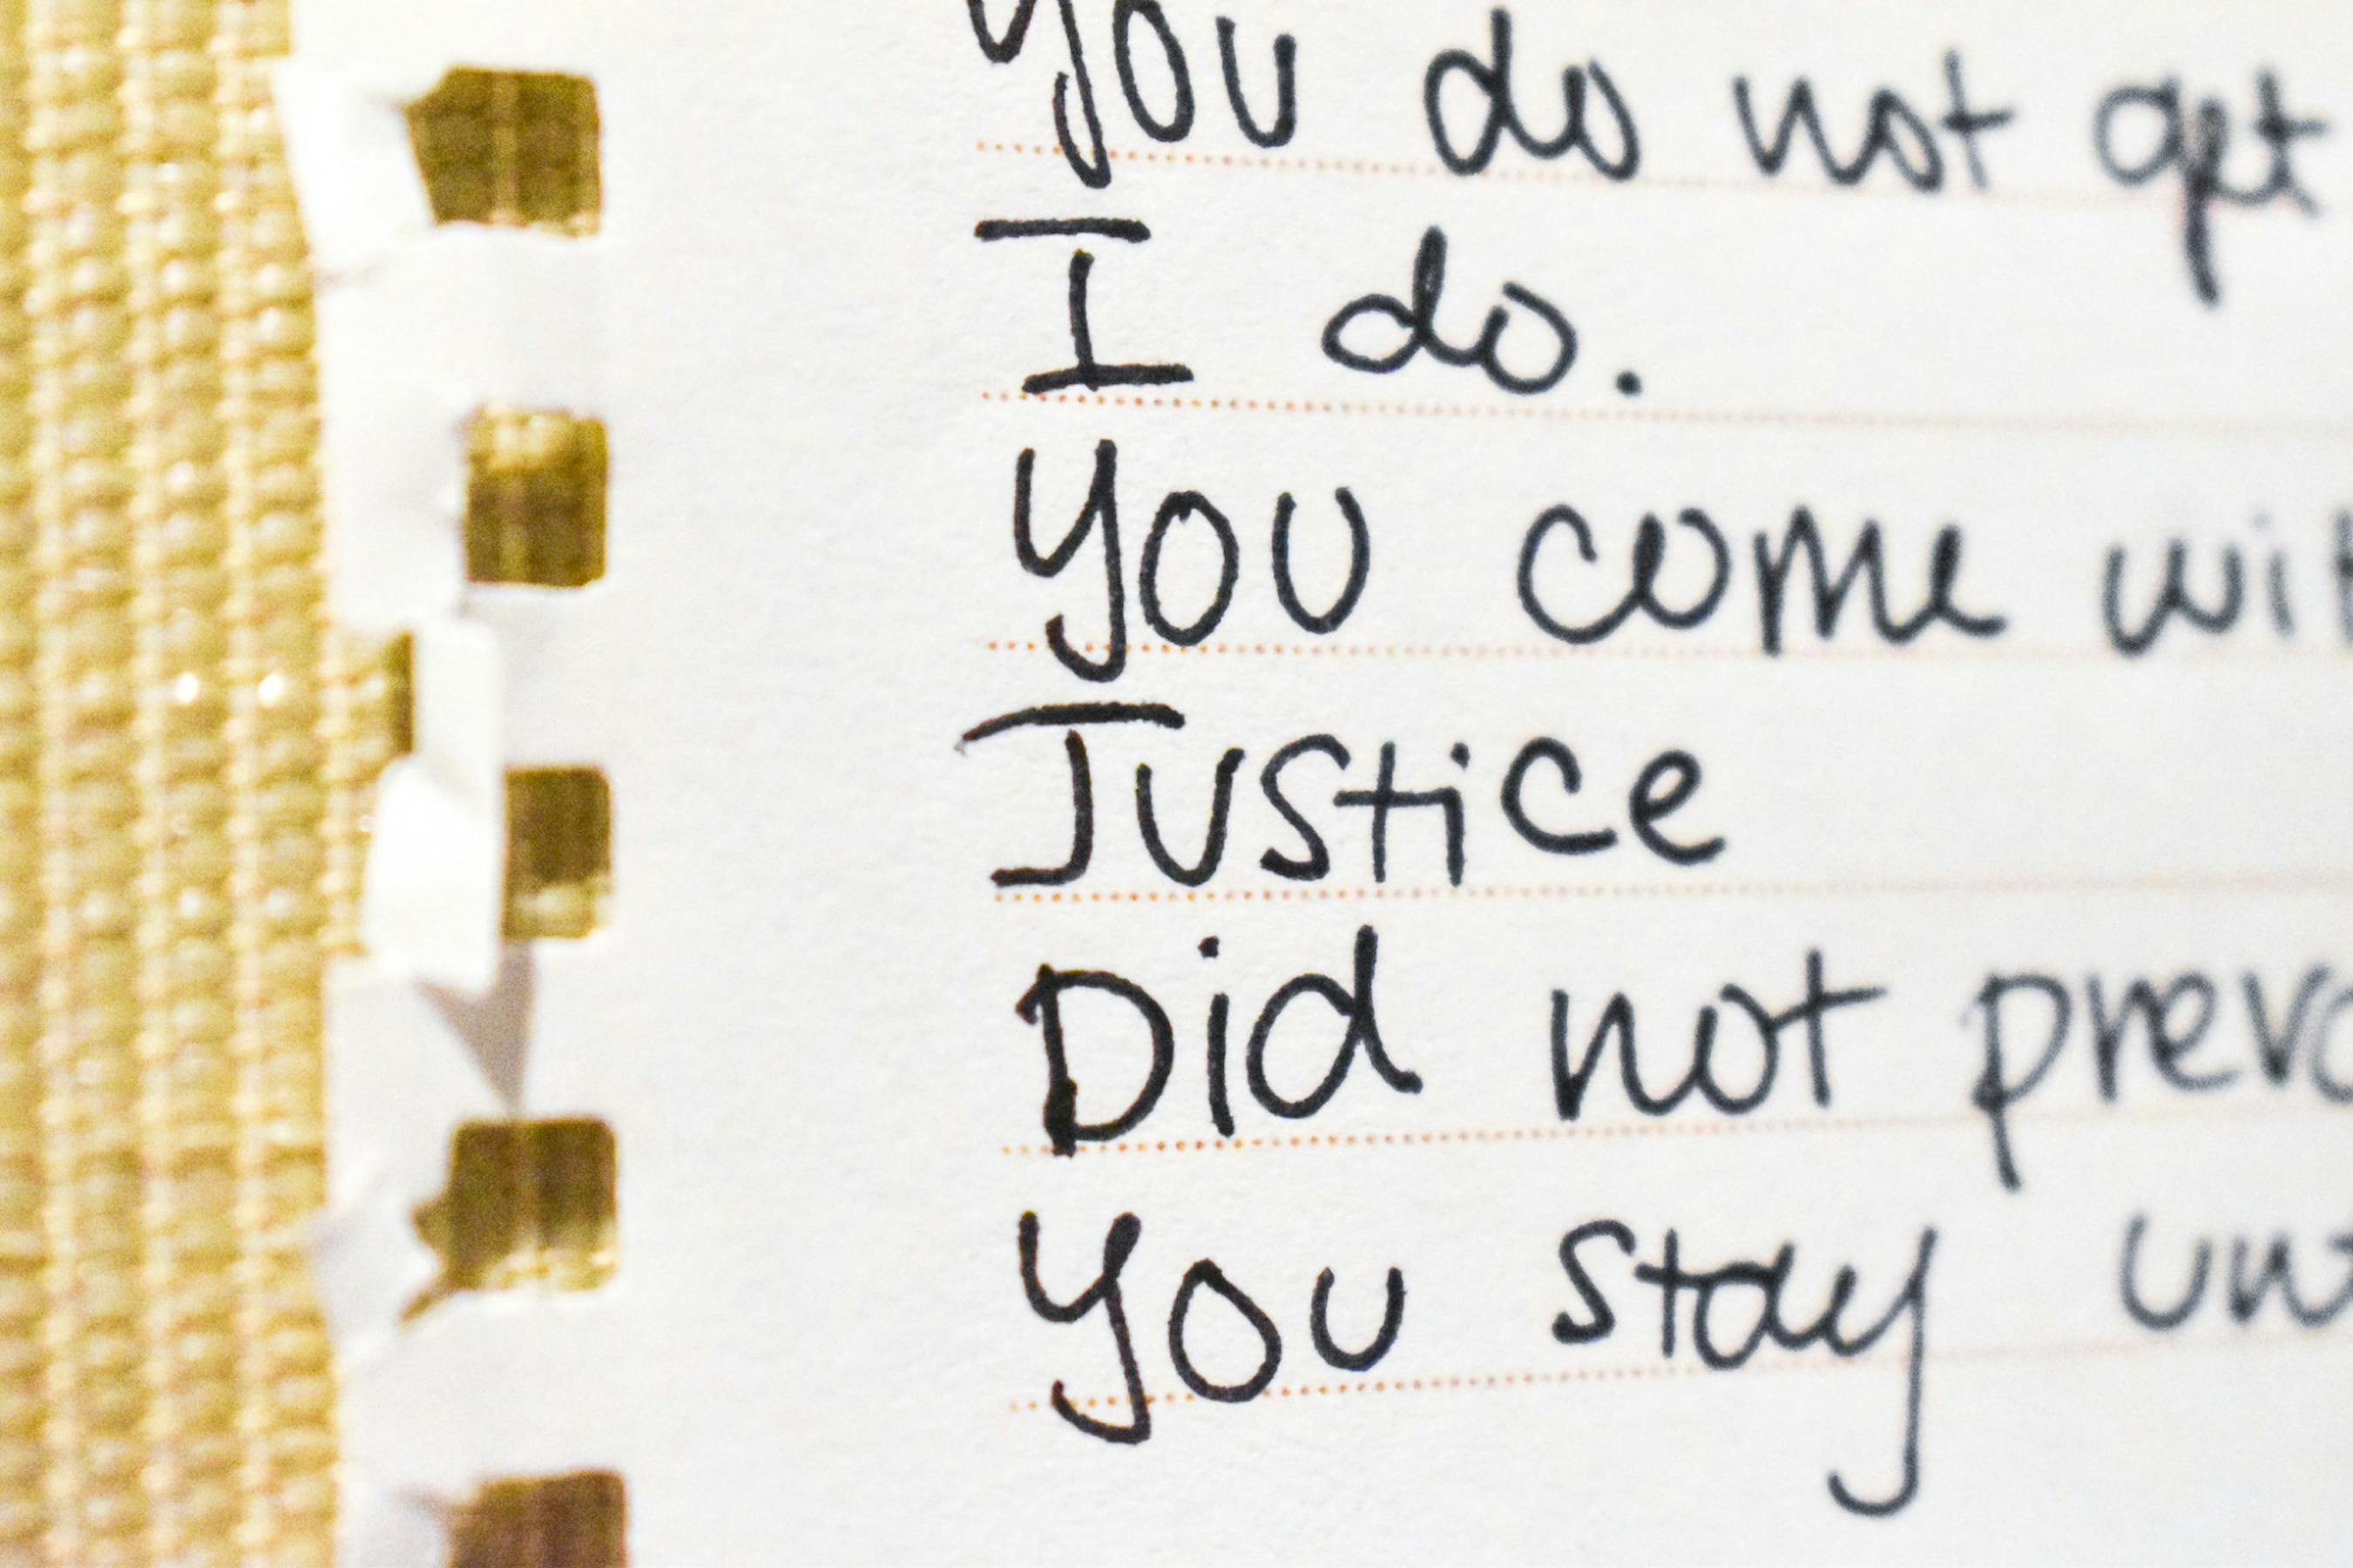 You do not get
I do.
You come wit
Justice
Did not preva
You stay unt